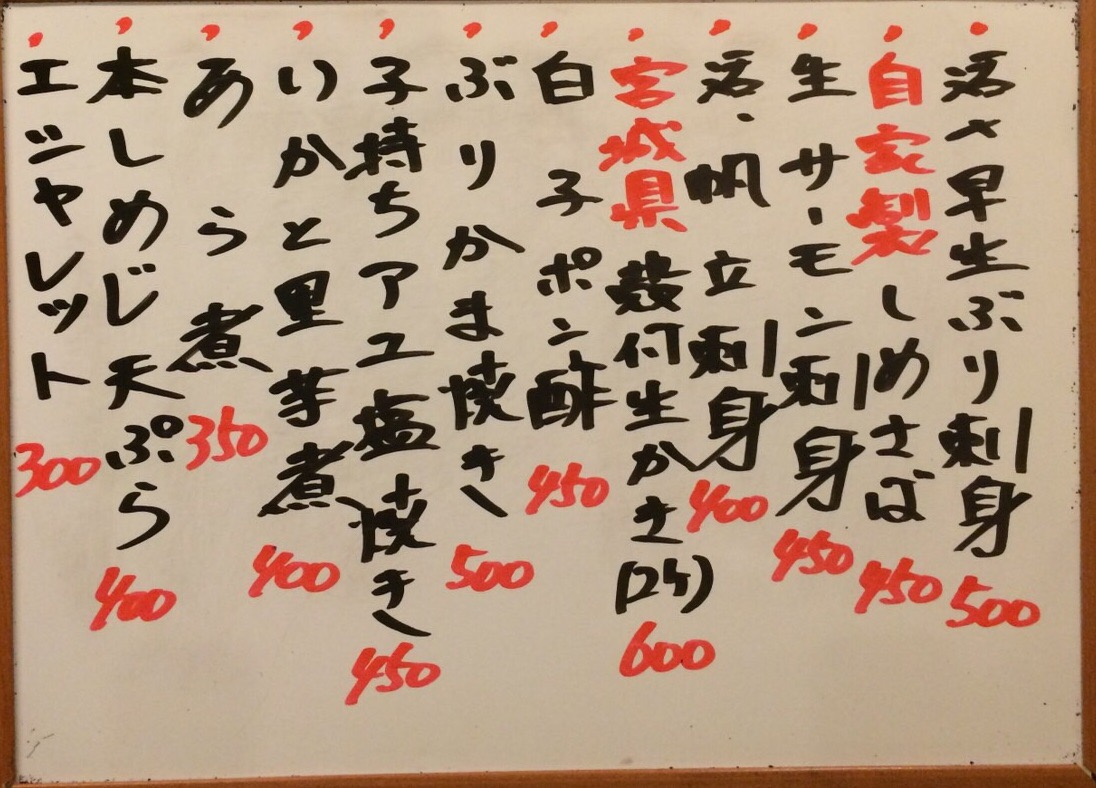 ・活〆早生ぶり刺身 500
・自家製しめさば 450
・生サーモン刺身 450
・活・帆立刺身 400
・宮城県殻付生かき(2ケ) 600
・白子ポン酢 450
・ぶりかま焼き 500
・子持ちアユ塩焼き 450
・いかと里芋煮 400
・あら煮 350
・本しめじ天ぷら 400
・エシャレット 300